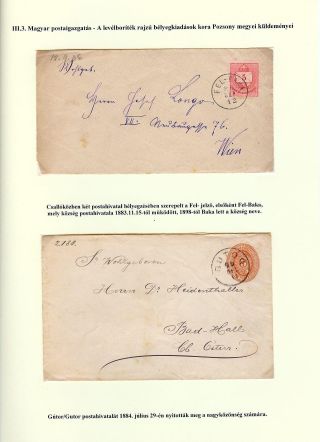 III.3. Magyar postaigazgatás - A levélboríték rajzú bélyegkiadások kora Pozsony megyei küldeményei
Wohlgeb.
FEL-BA
Herrn Josef Longo
VII. Neubaugasse 76.
Wien
Csallóközben két postahivatal bélyegzésében szerepelt a Fel- jelző, elsőként Fel-Baka,
mely község postahivatala 1883.11.15-től működött, 1898-tól Baka lett a község neve.
2.180.
Sr Wohlgeboren
Herrn Dr Heidenthaller
Bad-Hall
Ob. Österr.
Gútor/Gutor postahivatalát 1884. július 29-én nyitották meg a nagyközönség számára.